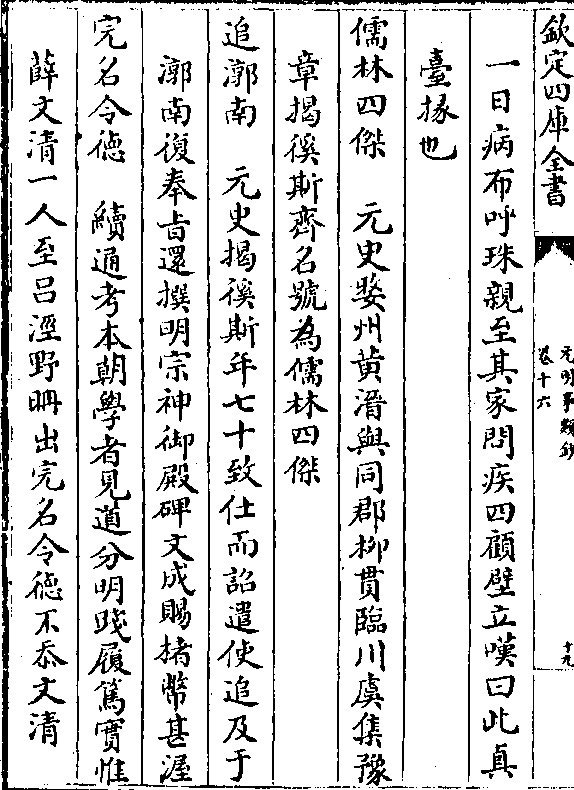 欽定四庫全書
元明事類鈔
卷十六
十九
一日病布呼珠親至其家問疾四顧壁立嘆曰此真
臺掾也
儒林四傑　元史婺州黄溍與同郡柳貫臨川虞集豫
章揭徯斯齊名號為儒林四傑
追漷南　元史揭徯斯年七十致仕而詔遣使追及于
漷南復奉旨還撰明宗神御殿碑文成賜楮幣甚渥
完名令徳　續通考本朝學者見道分明踐履篤實惟
薛文清一人至吕涇野𣅳出完名令徳不忝文清